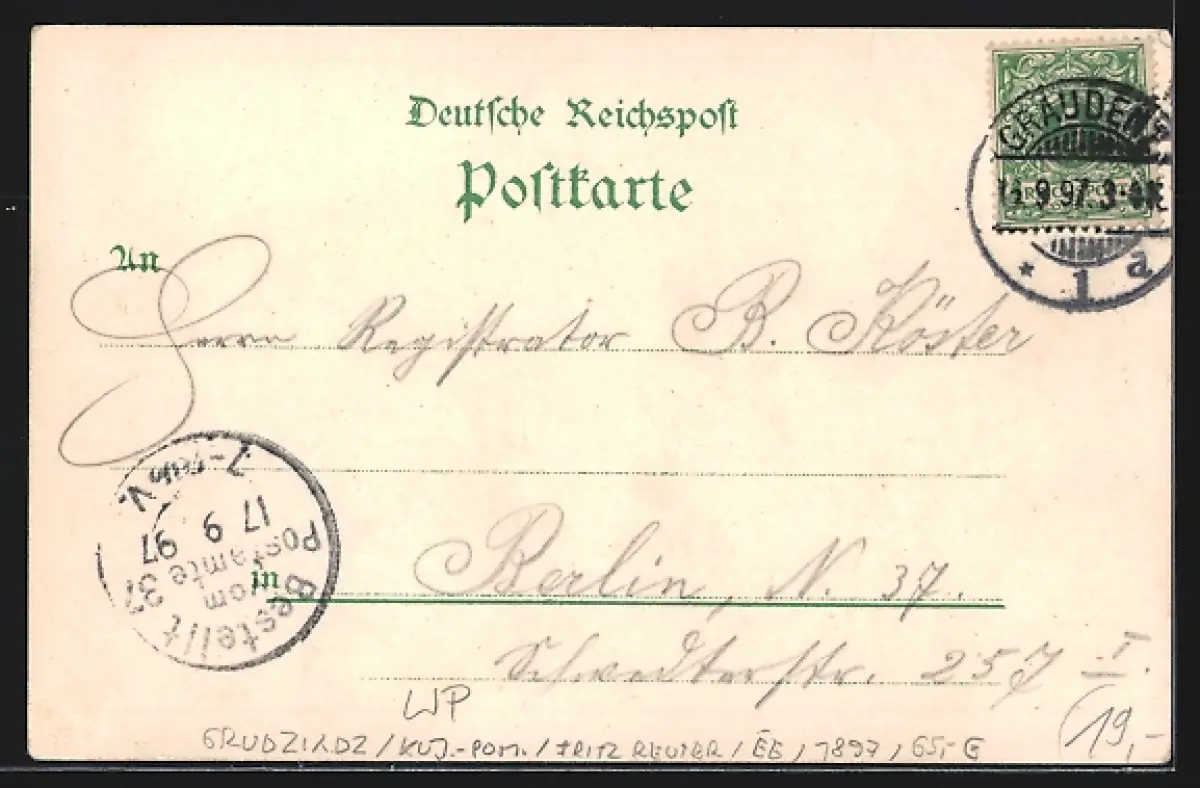 Deutsche Reichspost
Postkarte
GRAUDENZ
9.97. 3-4N.
* 1 a
REICHSPOST
An
Herrn Registrator B. Köster
Bestellt
vom
Postamte 37
17 9 97
V.
in Berlin, N. 37.
Schwedterstr. 257 I.
WP
(19,-
GRUDZIADZ / KUJ.-POM. / FRITZ REUTER / EE, 1897, 65,- €